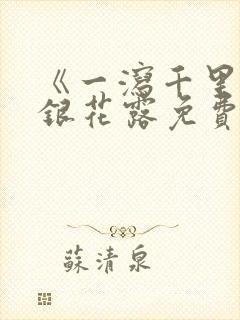 《一瀉千里
銀花露免費
蘇清泉